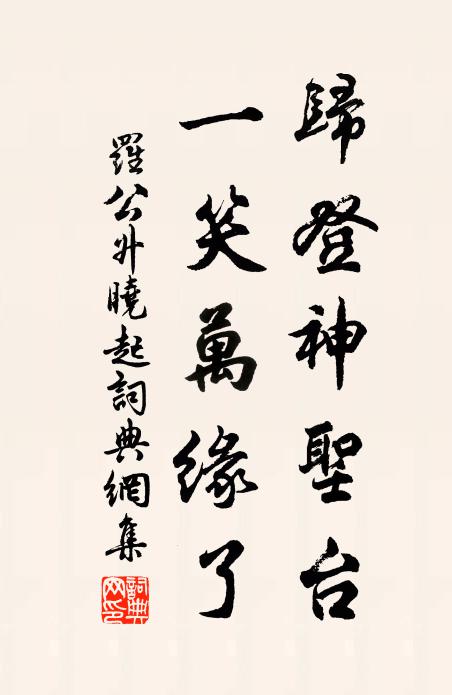 歸登神聖台
一笑萬緣了
羅公升曉起詞典網集
詞典網印